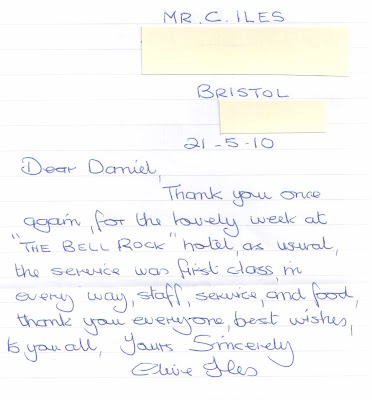 MR. C. ILES
BRISTOL
21-5-10
Dear Daniel,
Thank you once
again, for the lovely week at
"THE BELL ROCK" hotel, as usual,
the service was first class, in
every way, staff, service, and food,
thank you everyone, best wishes,
to you all, Yours Sincerely
Clive Iles